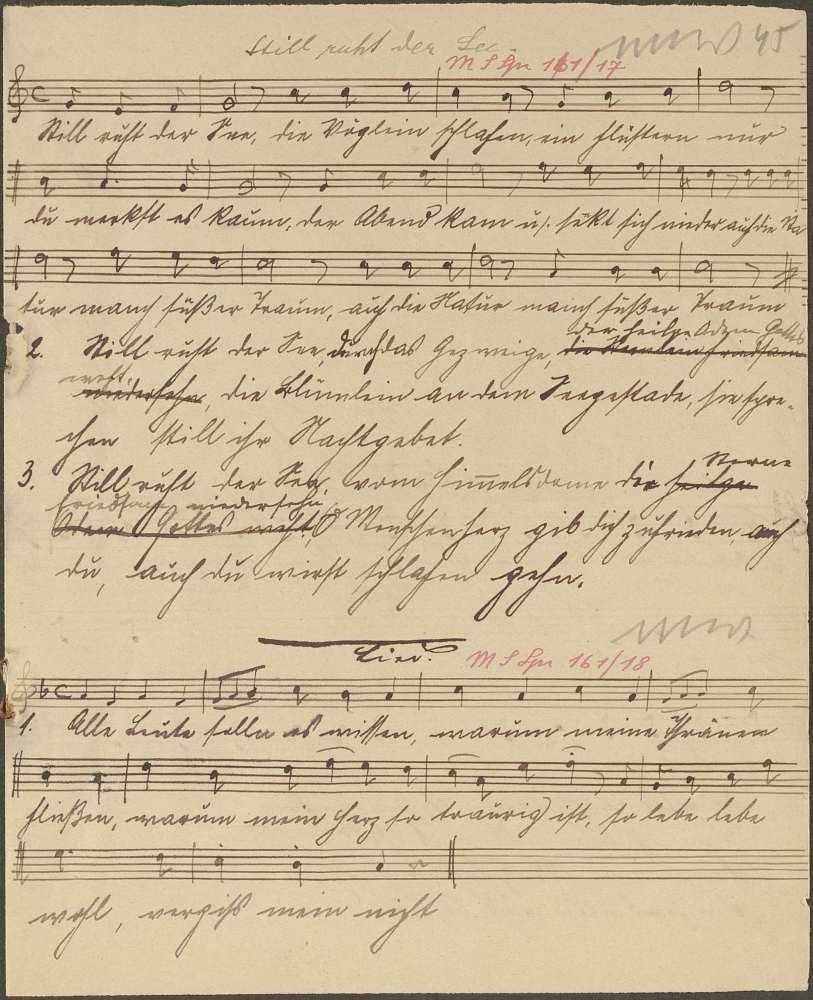 Still ruht der See.
45
M S Spr 161/17
Still ruht der See, die Vöglein schlafen, ein flüstern nur
du merkst es kaum, der Abend kam u. senkt sich nieder auf die Na
tur manch süßer Traum, auf die Natur manch süßer Traum
der heilge Odem Gottes
2. Still ruht der See, durch das Gezweige, die Sternlein friedsam
weht
niedersehn, die Blümlein an dem Seegestade, sie spre-
chen still ihr Nachtgebet.
Sterne
3. Still ruht der See, vom Himmelsdome die heilge
friedsam niedersehn
Odem Gottes weht, O Menschenherz gib dich zufrieden, auch
du, auch du wirst schlafen gehn.
Lied.
M S Spr 161/18
1. Alle Leute sollen es wissen, warum meine Thränen
fließen, warum mein Herz so traurig ist, so lebe lebe
wohl, vergiß mein nicht